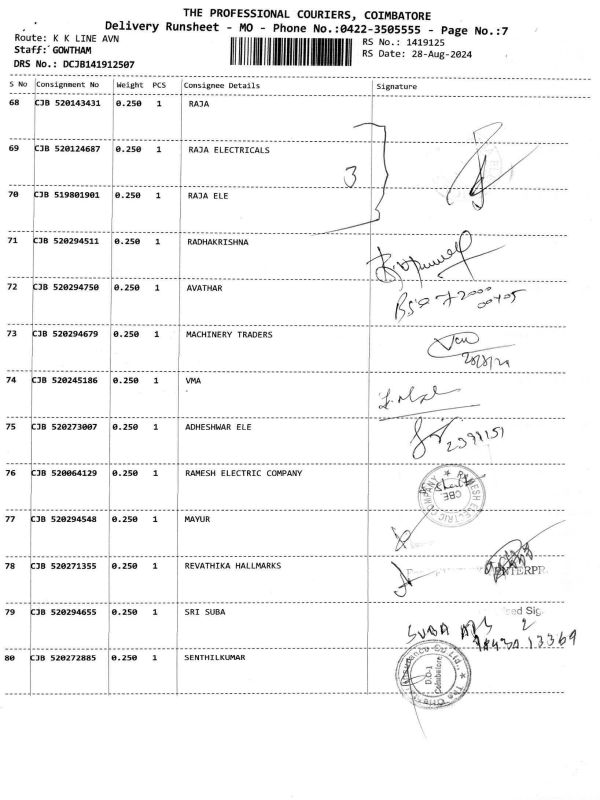 THE PROFESSIONAL COURIERS, COIMBATORE
Delivery Runsheet - MO - Phone No.:0422-3505555 - Page No.:7
Route: K K LINE AVN
RS No.: 1419125
Staff: GOWTHAM
RS Date: 28-Aug-2024
DRS No.: DCJB141912507
S No Consignment No Weight PCS Consignee Details Signature
68 CJB 520143431 0.250 1 RAJA
69 CJB 520124687 0.250 1 RAJA ELECTRICALS
3
70 CJB 519801901 0.250 1 RAJA ELE
71 CJB 520294511 0.250 1 RADHAKRISHNA
72 CJB 520294750 0.250 1 AVATHAR
73 CJB 520294679 0.250 1 MACHINERY TRADERS
74 CJB 520245186 0.250 1 VMA
75 CJB 520273007 0.250 1 ADHESHWAR ELE
76 CJB 520064129 0.250 1 RAMESH ELECTRIC COMPANY
RAMESH ELECTRIC COMPANY CBE
77 CJB 520294548 0.250 1 MAYUR
78 CJB 520271355 0.250 1 REVATHIKA HALLMARKS
ENTERPR
79 CJB 520294655 0.250 1 SRI SUBA
Sig.
SUBA
80 CJB 520272885 0.250 1 SENTHILKUMAR
D.O-1
Coimbatore